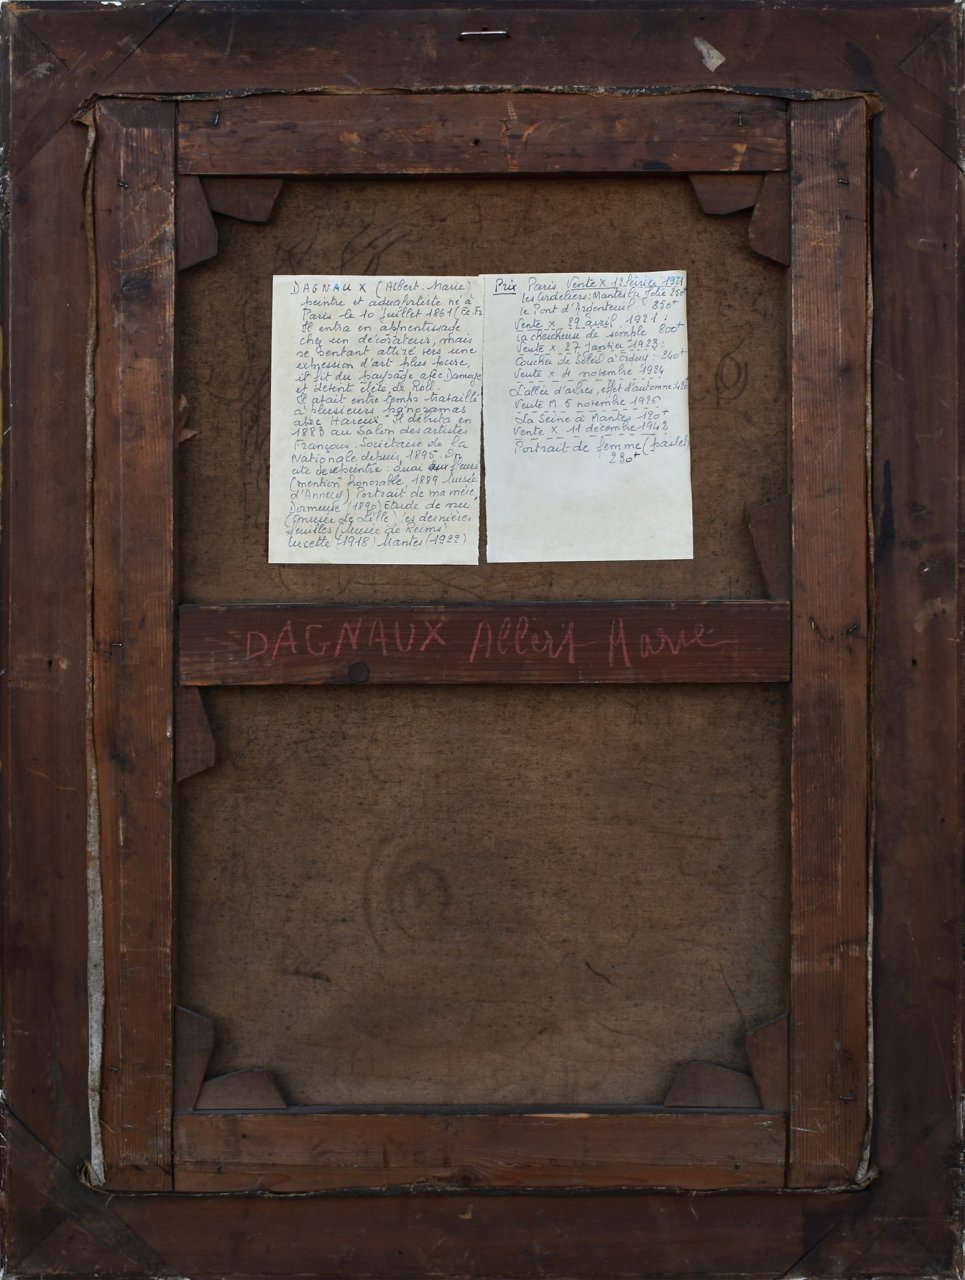 DAGNAUX (Albert. Marie)
peintre et aquafortiste né à
Paris le 10 juillet 1861 (Ec.Fs
Il entra en apprentissage
chez un décorateur, mais
se sentant attiré vers une
expression d'art plus pure,
il fit du paysage avec Damoye
et devint élève de Roll.
Il avait entre temps travaillé
à plusieurs panoramas
avec Hareux. Il débuta en
1883 au Salon des artistes
Français, Sociétaire de la
Nationale depuis 1895. On
cite de ce peintre: Quai aux fleurs
(mention honorable, 1889 Musée
d'Annecy) Portrait de ma mère,
Dormeuse (1890) Etude de nu
(musée de Lille) les dernières
feuilles (Musée de Reims)
Lucette (1918) Mantes (1922)
Prix Paris Vente X 12 février 1921
les Cordeliers; Mantes la Jolie 250f
le Pont d'Argenteuil 350f
Vente X 29 avril 1921:
la chercheuse de simple 800f
Vente X 27 Janvier 1923:
Coucher de Soleil à 240f
Vente X 4 novembre 1924
L'allée d'arbres, effet d'automne: 420
Vente M 5 novembre 1926
La Seine à Mantes 120f
Vente X 11 décembre 1942
Portrait de femme (pastel)
230f
DAGNAUX Albert Marie